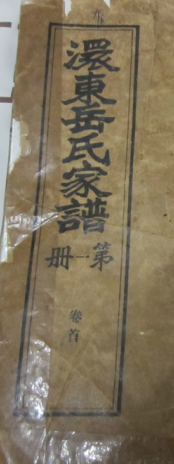 澴東岳氏家譜
第一册
卷首